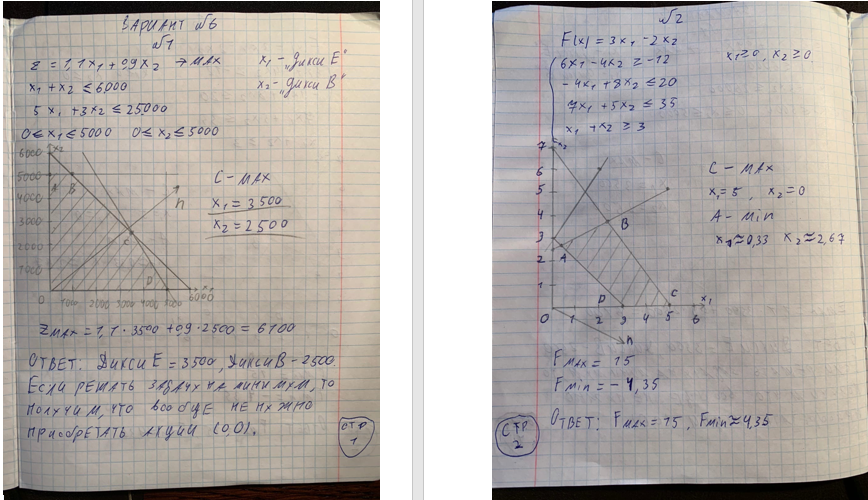 ВАРИАНТ №6
№1
z = 1,1x₁ + 0,9x₂ → MAX
x₁ - „Дикси Е"
x₁ + x₂ ≤ 6000
x₂ - „Дикси В"
5x₁ + 3x₂ ≤ 25000
0 ≤ x₁ ≤ 5000 0 ≤ x₂ ≤ 5000
x₂
6000
5000
4000
3000
2000
1000
A B
C
D
n
0 1000 2000 3000 4000 5000 6000
C - MAX
x₁ = 3500
x₂ = 2500
Z MAX = 1,1 · 3500 + 0,9 · 2500 = 6100
ОТВЕТ: ДИКСИ Е = 3500, ДИКСИ В - 2500.
ЕСЛИ РЕШАТЬ ЗАДАЧУ НА МИНИМУМ, ТО
ПОЛУЧИМ, ЧТО ВООБЩЕ НЕ НУЖНО
ПРИОБРЕТАТЬ АКЦИИ (0,0).
СТР
1
№2
F(x) = 3x₁ - 2x₂
6x₁ - 4x₂ ≥ -12
x₁ ≥ 0, x₂ ≥ 0
-4x₁ + 8x₂ ≤ 20
7x₁ + 5x₂ ≤ 35
x₁ + x₂ ≥ 3
x₂
7
6
5
4
3
2
1
A
B
D
C
x₁
0 1 2 3 4 5 6
n
C - MAX
x₁ = 5, x₂ = 0
A - MIN
x₁ ≈ 0,33 x₂ ≈ 2,67
F MAX = 15
F MIN = - 4,35
ОТВЕТ: F MAX = 15, F MIN ≈ 4,35
СТР
2